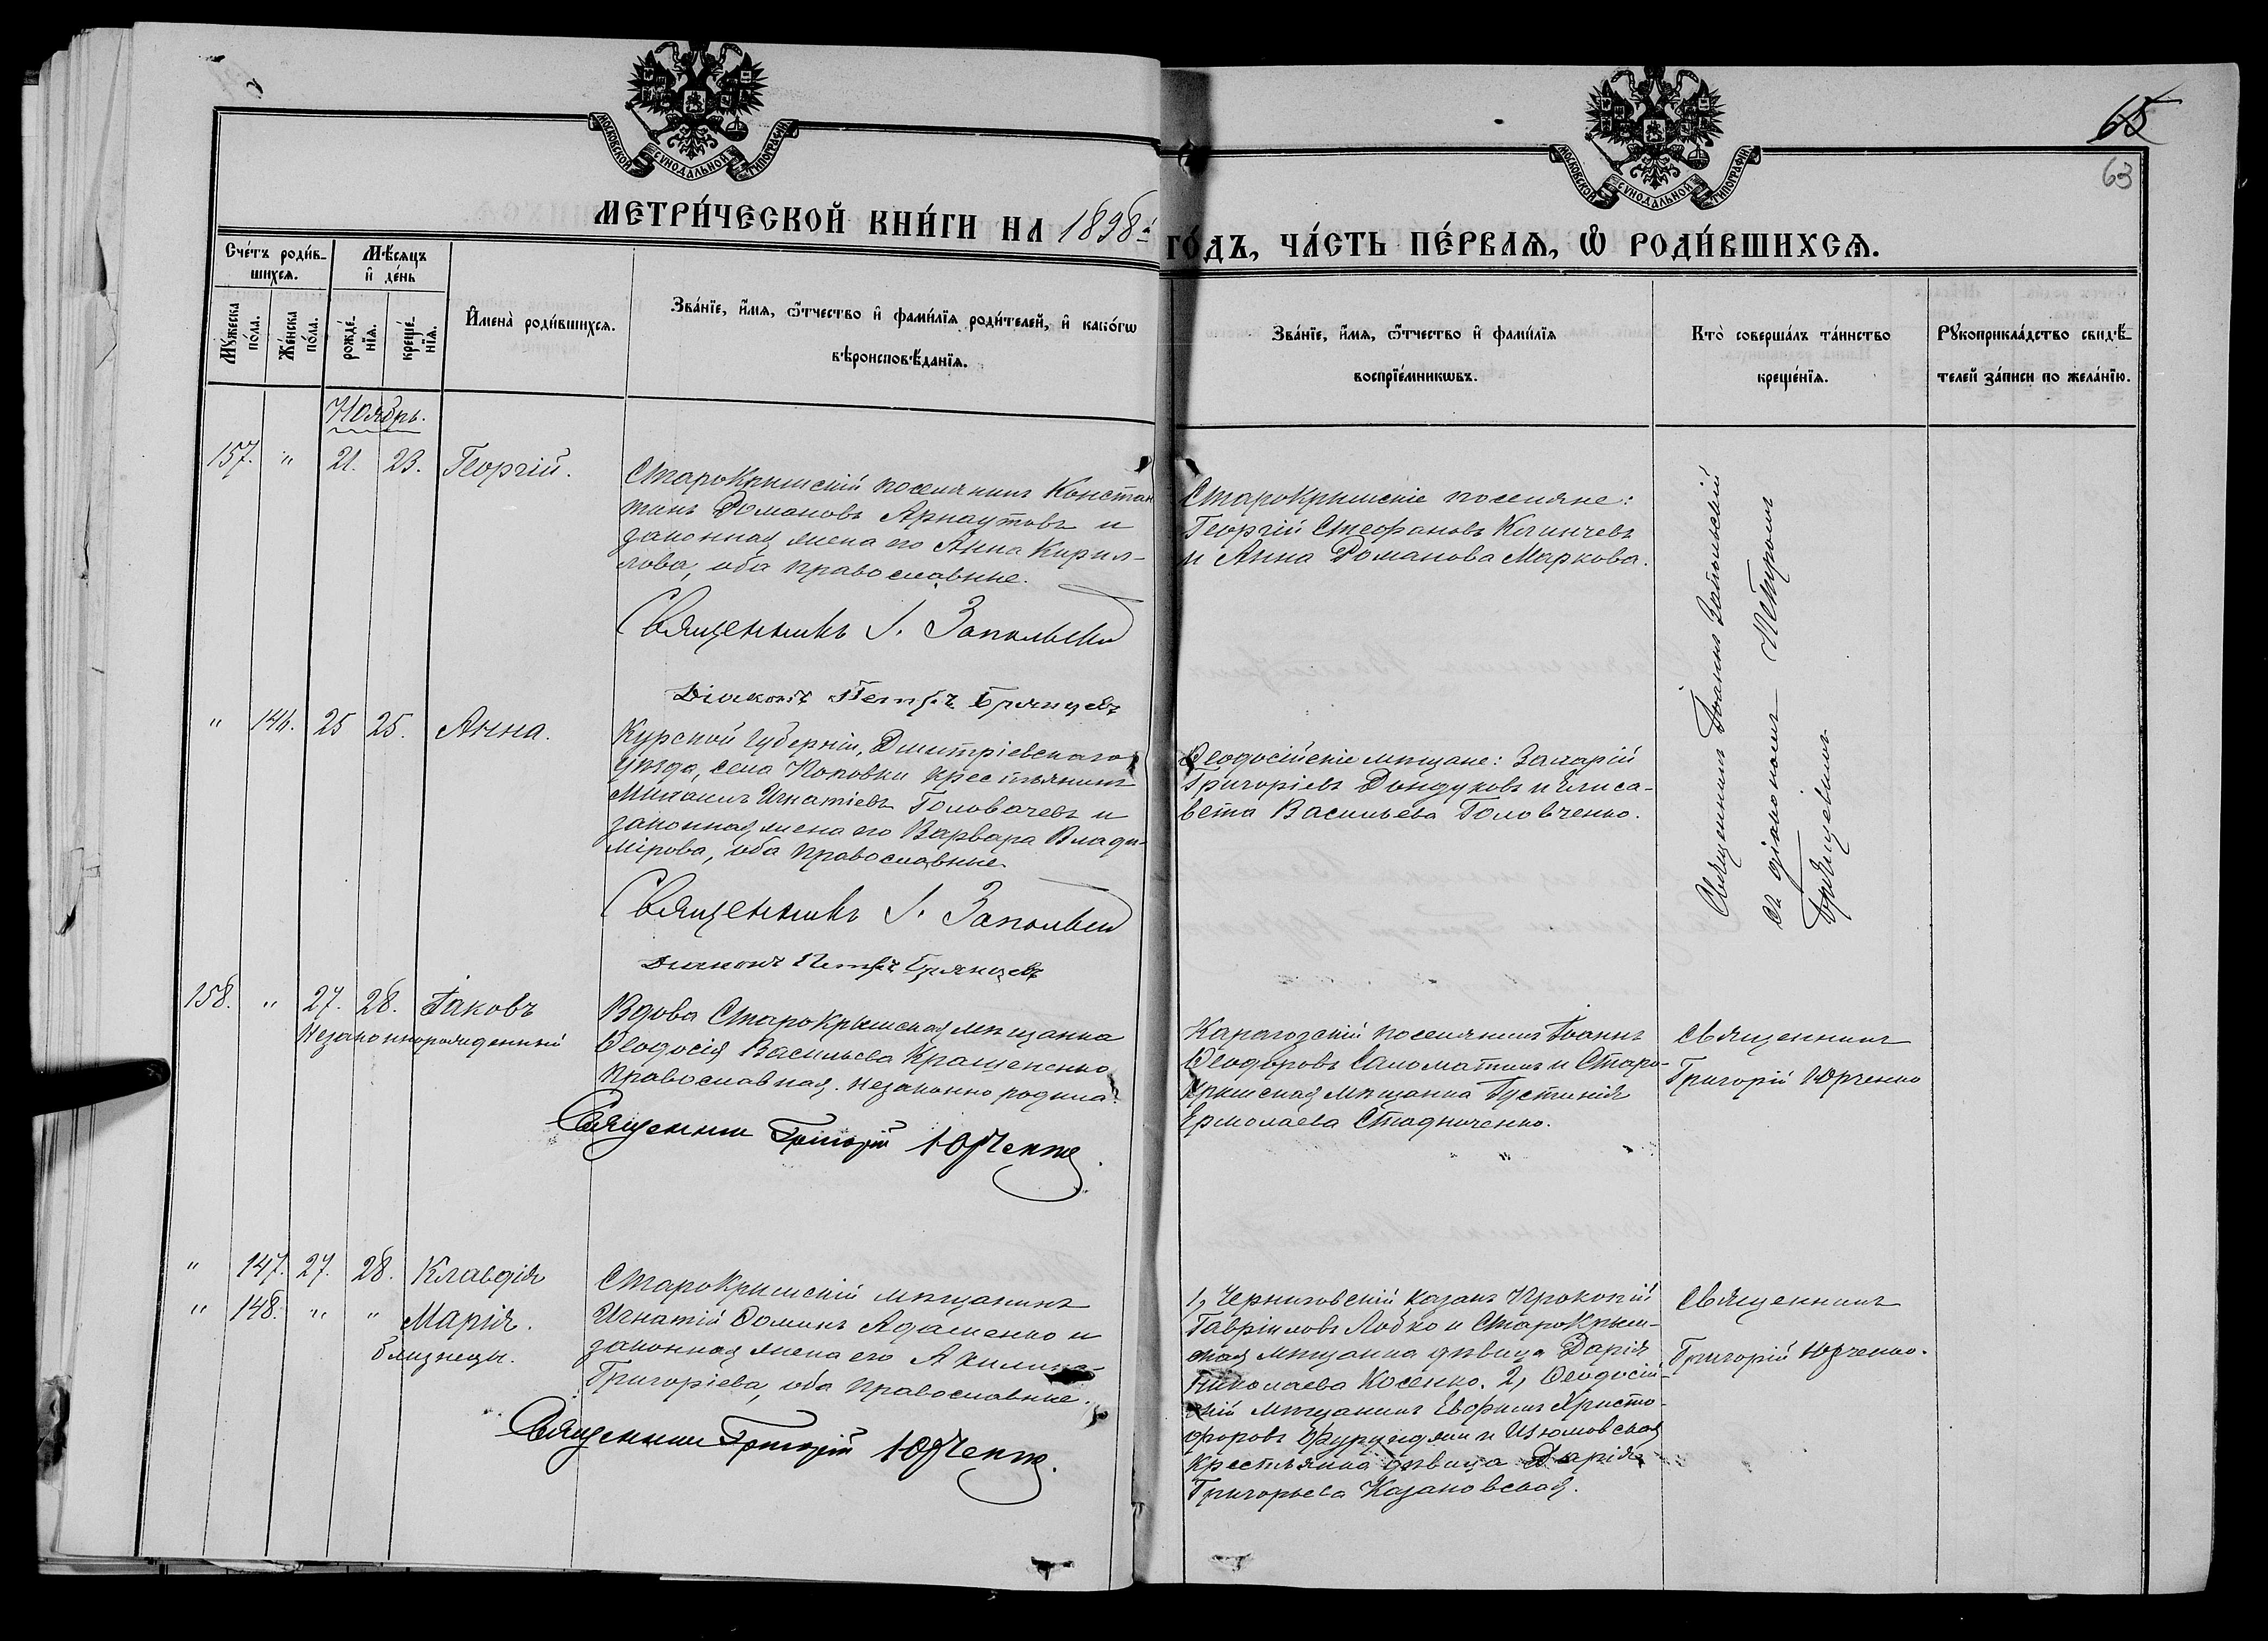 МОСКОВСКОЙ СУНОДАЛЬНОЙ ТИПОГРАФІИ
МОСКОВСКОЙ СУНОДАЛЬНОЙ ТИПОГРАФІИ
65
63
МЕТРИ́ЧЕСКОЙ КНИ́ГИ НА 1898й
ГО́ДЪ, ЧА́СТЬ ПЕ́РВАЯ, Ѡ҆ РОДИ́ВШИХСЯ.
Сче́тъ роди́в-
шихся.
Му́жеска по́ла.
Же́нска по́ла.
Мѣ́сяцъ
и҆ де́нь
рожде́-
нїя.
креще́-
нїя.
И҆мена̀ роди́вшихся.
Зва́нїе, и҆́мя, ѻ҆́тчество и҆ фами́лїя роди́телей, и҆ како́гѡ
вѣроисповѣ́данїя.
Зва́нїе, и҆́мя, ѻ҆́тчество и҆ фами́лїя
воспрїе́мникѡвъ.
Кто̀ соверша́лъ та́инство
креще́нїя.
Рꙋкоприкла́дство свидѣ́-
телей за́писи по жела́нїю.
Ноябрь.
157. " 21. 23. Георгій.
Старокрымскій поселянинъ Констан
тинъ Романовъ Арнаутовъ и
законная жена его Анна Кирил-
лова, оба православные.
Священникъ І. Запольскій
Діаконъ Петръ Брянцевъ
Старокрымскіе поселяне:
Георгій Стефановъ Клинчевъ
и Анна Романова Маркова.
Священникъ Іоаннъ Запольскій
съ діакономъ Петромъ
Брянцевымъ
" 146. 25 25. Анна.
Курской губерніи, Дмитріевскаго
уѣзда, села Поповки крестьянинъ
Михаилъ Игнатіевъ Головачевъ и
законная жена его Варвара Влади-
мірова, оба православные.
Священникъ І. Запольскій
Діаконъ Петръ Брянцевъ
Ѳеодосійскіе мѣщане: Захарій
Григоріевъ Дондуковъ и Елиса-
вета Васильева Головченко.
158. " 27. 28. Іаковъ
Незаконнорожденный
Вдова Старокрымская мѣщанка
Ѳеодосія Васильева Кращенко
православная. незаконно родила.
Священникъ Григорій Юрченко.
Карагозскій поселянинъ Іоаннъ
Ѳеодоровъ Саломатинъ и Старо-
крымская мѣщанка Іустинія
Ермолаева Стадниченко.
Священникъ
Григорій Юрченко
" 147. 27. 28. Клавдія
" 148. " " Марія.
близнецы.
Старокрымскій мѣщанинъ
Игнатій Ѳоминъ Адаменко и
законная жена его Акилина
Григоріева, оба православные.
Священникъ Григорій Юрченко.
1, Черниговскій казакъ Прокопій
Гавріиловъ Лобко и Старокрым-
ская мѣщанка дѣвица Дарія
Николаева Косенко. 2, Ѳеодосій-
скій мѣщанинъ Евфимъ Христо-
форовъ и Изюмовская
крестьянка дѣвица Дарія
Григорьева Казановская.
Священникъ
Григорій Юрченко.